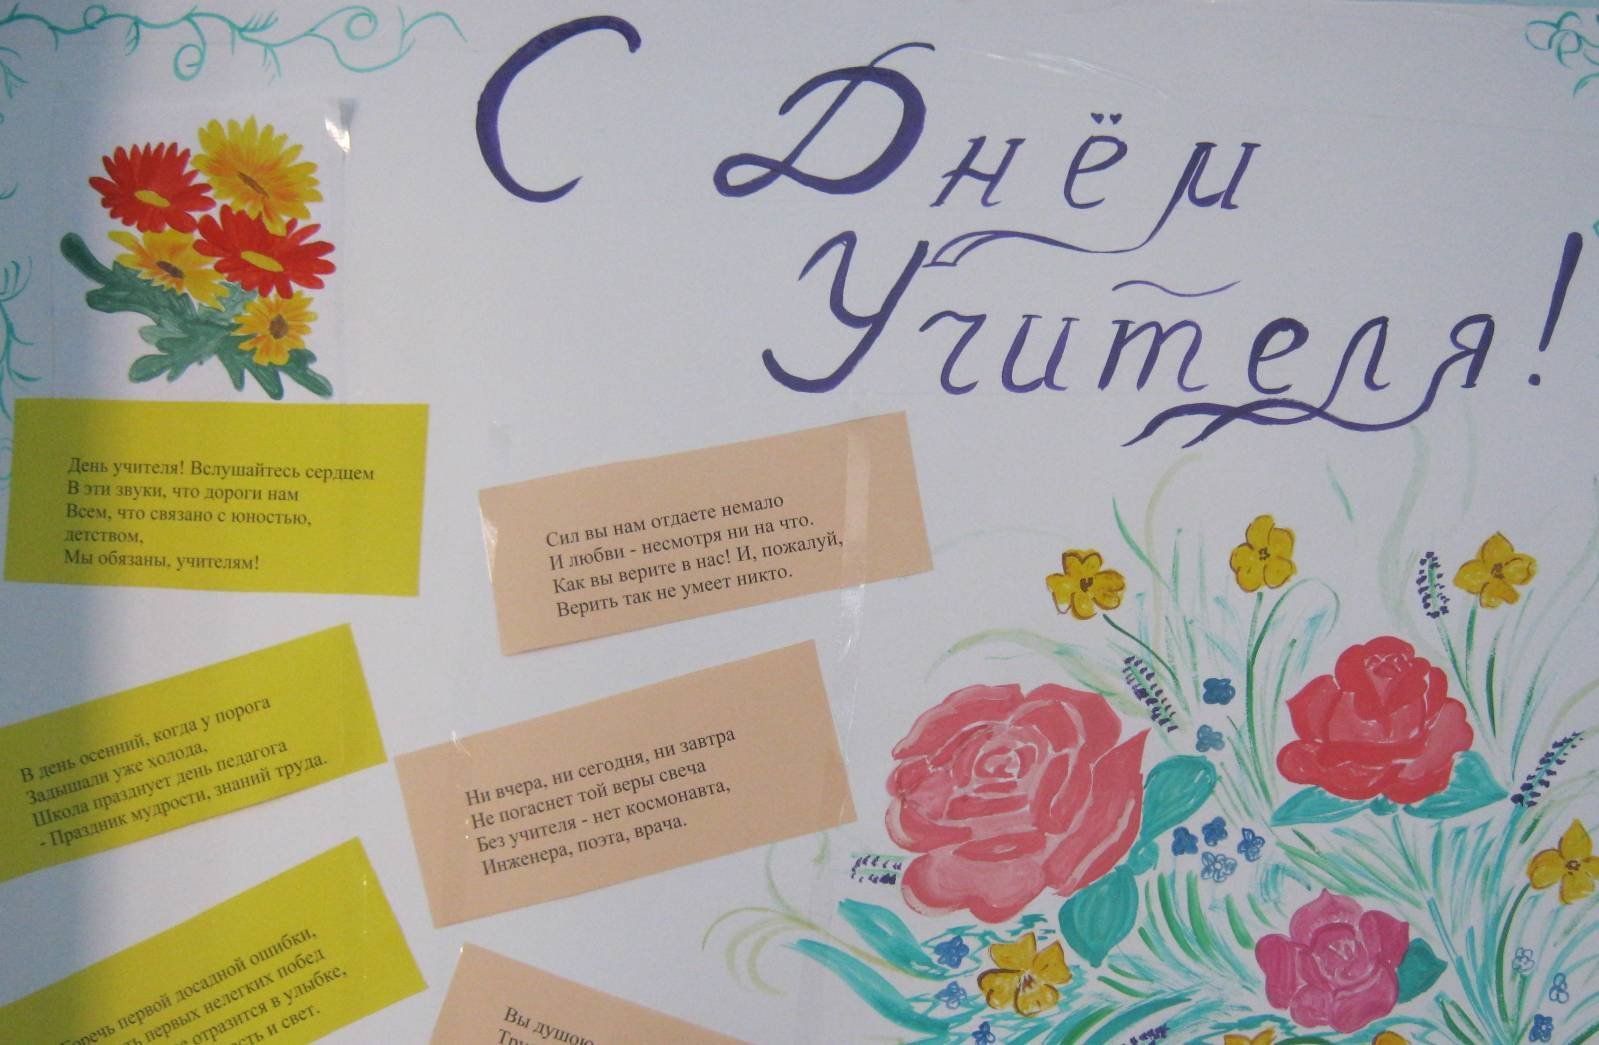 С Днём
Учителя!
День учителя! Вслушайтесь сердцем
В эти звуки, что дороги нам
Всем, что связано с юностью,
детством,
Мы обязаны, учителям!
Сил вы нам отдаете немало
И любви - несмотря ни на что.
Как вы верите в нас! И, пожалуй,
Верить так не умеет никто.
В день осенний, когда у порога
Задышали уже холода,
Школа празднует день педагога
- Праздник мудрости, знаний труда.
Ни вчера, ни сегодня, ни завтра
Не погаснет той веры свеча
Без учителя - нет космонавта,
Инженера, поэта, врача.
первой досадной ошибки,
первых нелегких побед
отразится в улыбке,
и свет.
Вы душою